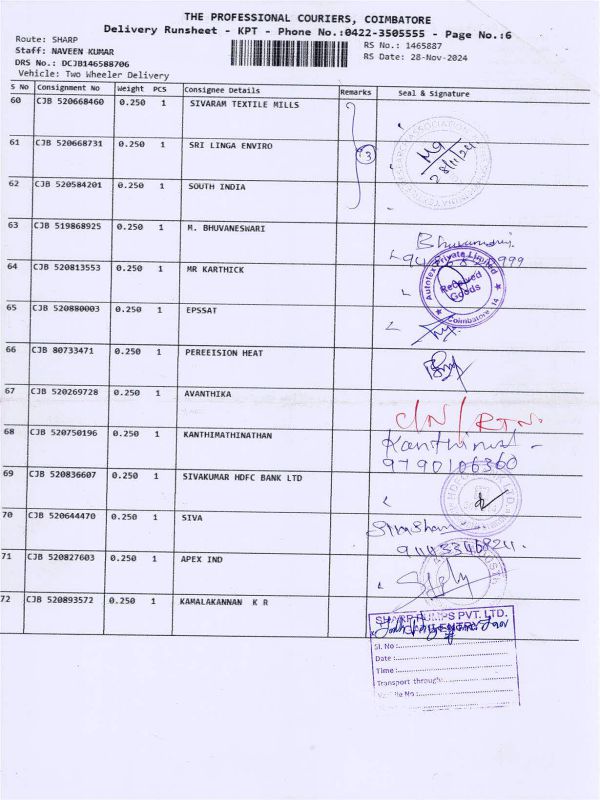 THE PROFESSIONAL COURIERS, COIMBATORE
Delivery Runsheet - KPT - Phone No.:0422-3505555 - Page No.:6
Route: SHARP
Staff: NAVEEN KUMAR
DRS No.: DCJB146588706
Vehicle: Two Wheeler Delivery
RS No.: 1465887
RS Date: 28-Nov-2024
S No Consignment No Weight PCS Consignee Details Remarks Seal & Signature
60 CJB 520668460 0.250 1 SIVARAM TEXTILE MILLS
61 CJB 520668731 0.250 1 SRI LINGA ENVIRO 3 28/11/24
62 CJB 520584201 0.250 1 SOUTH INDIA
63 CJB 519868925 0.250 1 M. BHUVANESWARI
64 CJB 520813553 0.250 1 MR KARTHICK Autotex Private Limited Received Goods Coimbatore 14
65 CJB 520880003 0.250 1 EPSSAT
66 CJB 80733471 0.250 1 PEREEISION HEAT
67 CJB 520269728 0.250 1 AVANTHIKA C/N/RTN.
68 CJB 520750196 0.250 1 KANTHIMATHINATHAN
9790106360
69 CJB 520836607 0.250 1 SIVAKUMAR HDFC BANK LTD
70 CJB 520644470 0.250 1 SIVA
71 CJB 520827603 0.250 1 APEX IND
72 CJB 520893572 0.250 1 KAMALAKANNAN K R
SHARP PUMPS PVT. LTD.
ENTRY
Sl. No :
Date :
Time :
Transport through: